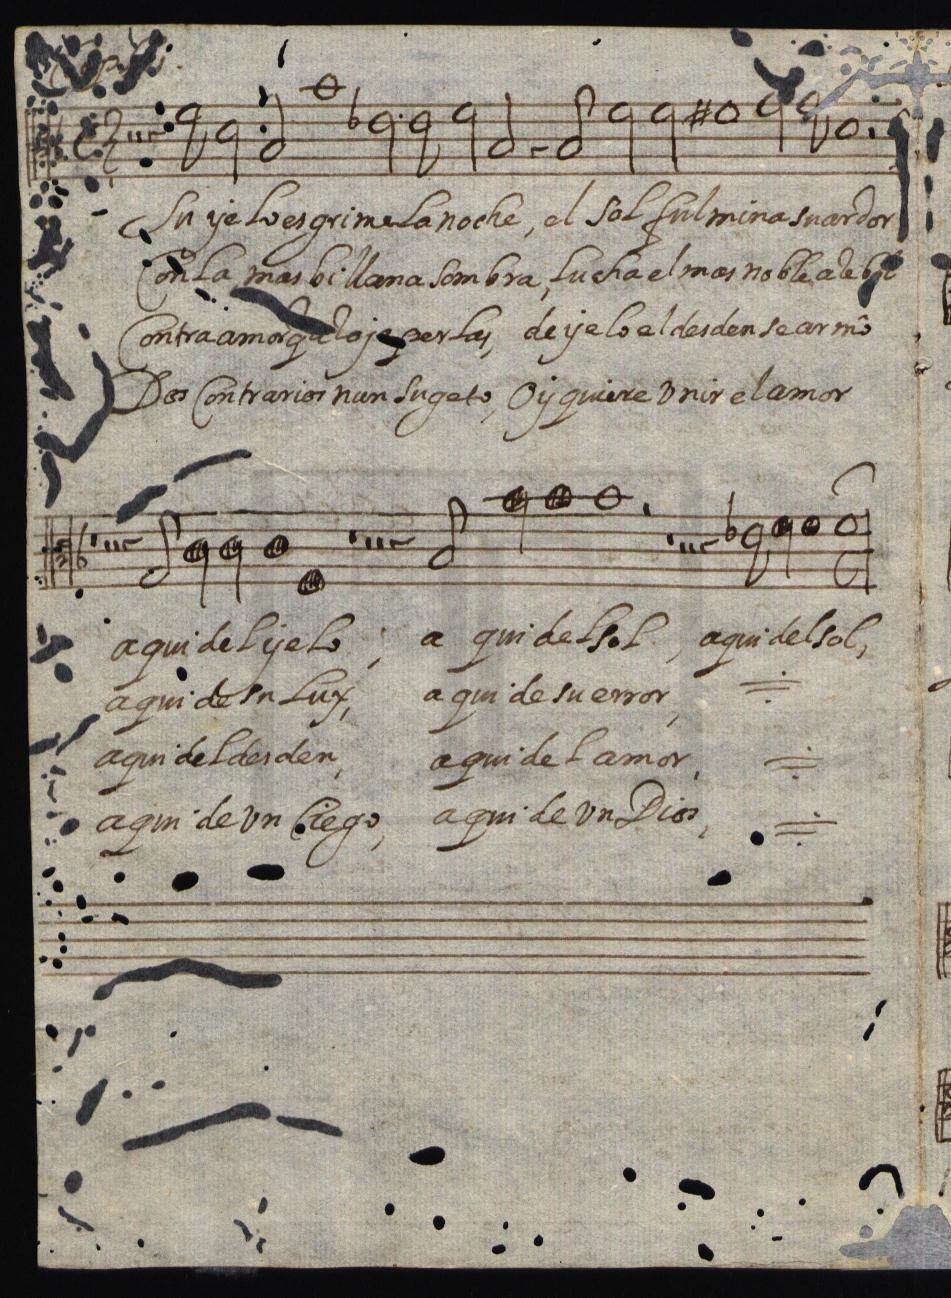 Su yelo esgrime la noche, el sol fulmina su ardor
Con la mas billana sombra, lucha el mas noble
Contra amor perlas, de yelo el desden se armô
Dos Contrarios nun sugeto, Oy quiere Vnir el amor
a qui del yelo, a qui del sol, a qui del sol,
a qui de su lux, a qui de su error,
a qui del desden, a qui del amor,
a qui de Vn Ciego, a qui de Vn Dios,